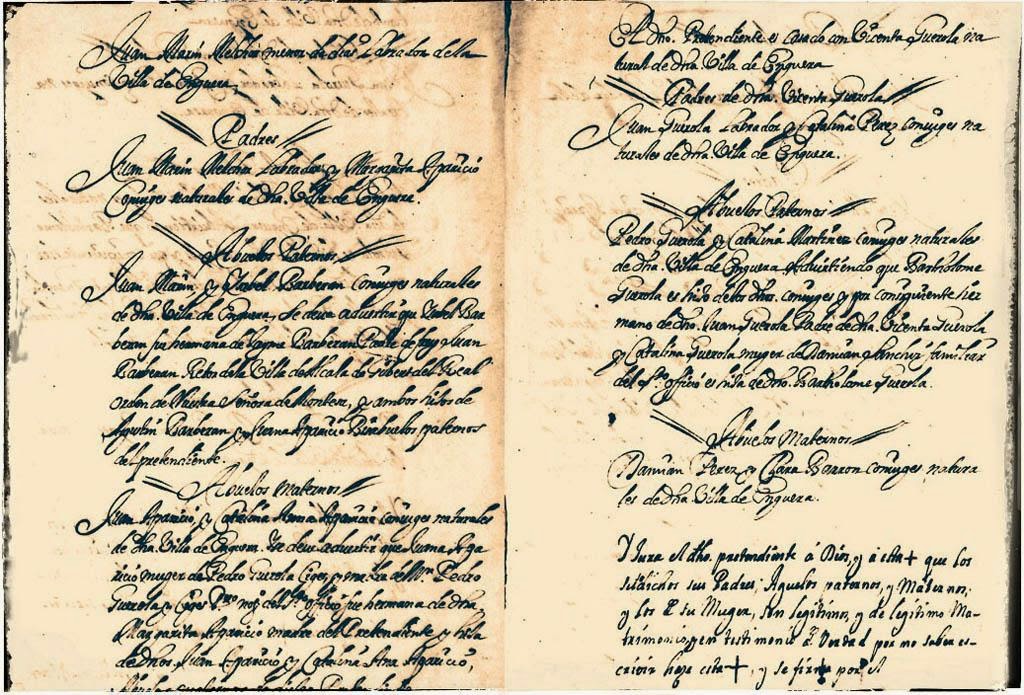 Juan Marin Melchor menor de dias Labrador de la
Villa de Enguera
Padres
Juan Marin Melchor Labrador y Margarita Aparicio
Conjuges naturales de dha. Villa de Enguera.
Abuelos Paternos
Juan Marin y Isabel Barberan conjuges naturales
de dha Villa de Enguera, Se deve advertir que Isabel Bar
beran fue hermana de Barberan Padre de frey Juan
Barberan Retor de la Villa de Alcala de Gibert del Real
orden de Nuestra Señora de Montesa, y ambos hijos de
Agustin Barberan y Juana Aparicio Bisabuelos paternos
del pretendiente.
Abuelos Maternos
Juan Aparicio, y Catalina Anna Aparicio conjuges naturales
de dha Villa de Enguera. Se deve advertir que Apa
ricio muger de Pedro Guerola Ciges, y madre del Pedro
Guerola y Ciges del Sto. officio fue hermana de dha.
Margarita Aparicio madre del Pretendiente y hija
de dhos. Juan Aparicio y Catalina Ana Aparicio,
El dho. Pretendiente es casado con Vicenta Guerola na
tural de dha. Villa de Enguera
Padres de dha. Vicenta Guerola
Juan Guerola Labrador y Catalina Perez conjuges na
turales de dha Villa de Enguera.
Abuelos Paternos
Pedro Guerola y Catalina Martinez conjuges naturales
de dha. Villa de Enguera Advirtiendo que Bartholome
Guerola es hijo de los dhos. conjuges y por consiguiente her
mano de dho. Juan Guerola Padre de dha. Vicenta Guerola
y Catalina Guerola muger de Damian Sanchiz familiar
del Sto. officio es hija de dho. Bartholome Guerola.
Abuelos Maternos
Damian Perez y Clara Barron conjuges natura
les de dha Villa de Enguera.
Y Jura el dho. pretendiente á Dios, y á esta + que los
susodichos sus Padres, Aguelos paternos, y Maternos,
y los de su Muger, son legitimos, y de legitimo Ma-
trimonio, y en testimonio de Verdad por no saber es-
crivir haze esta +, y se firma por el